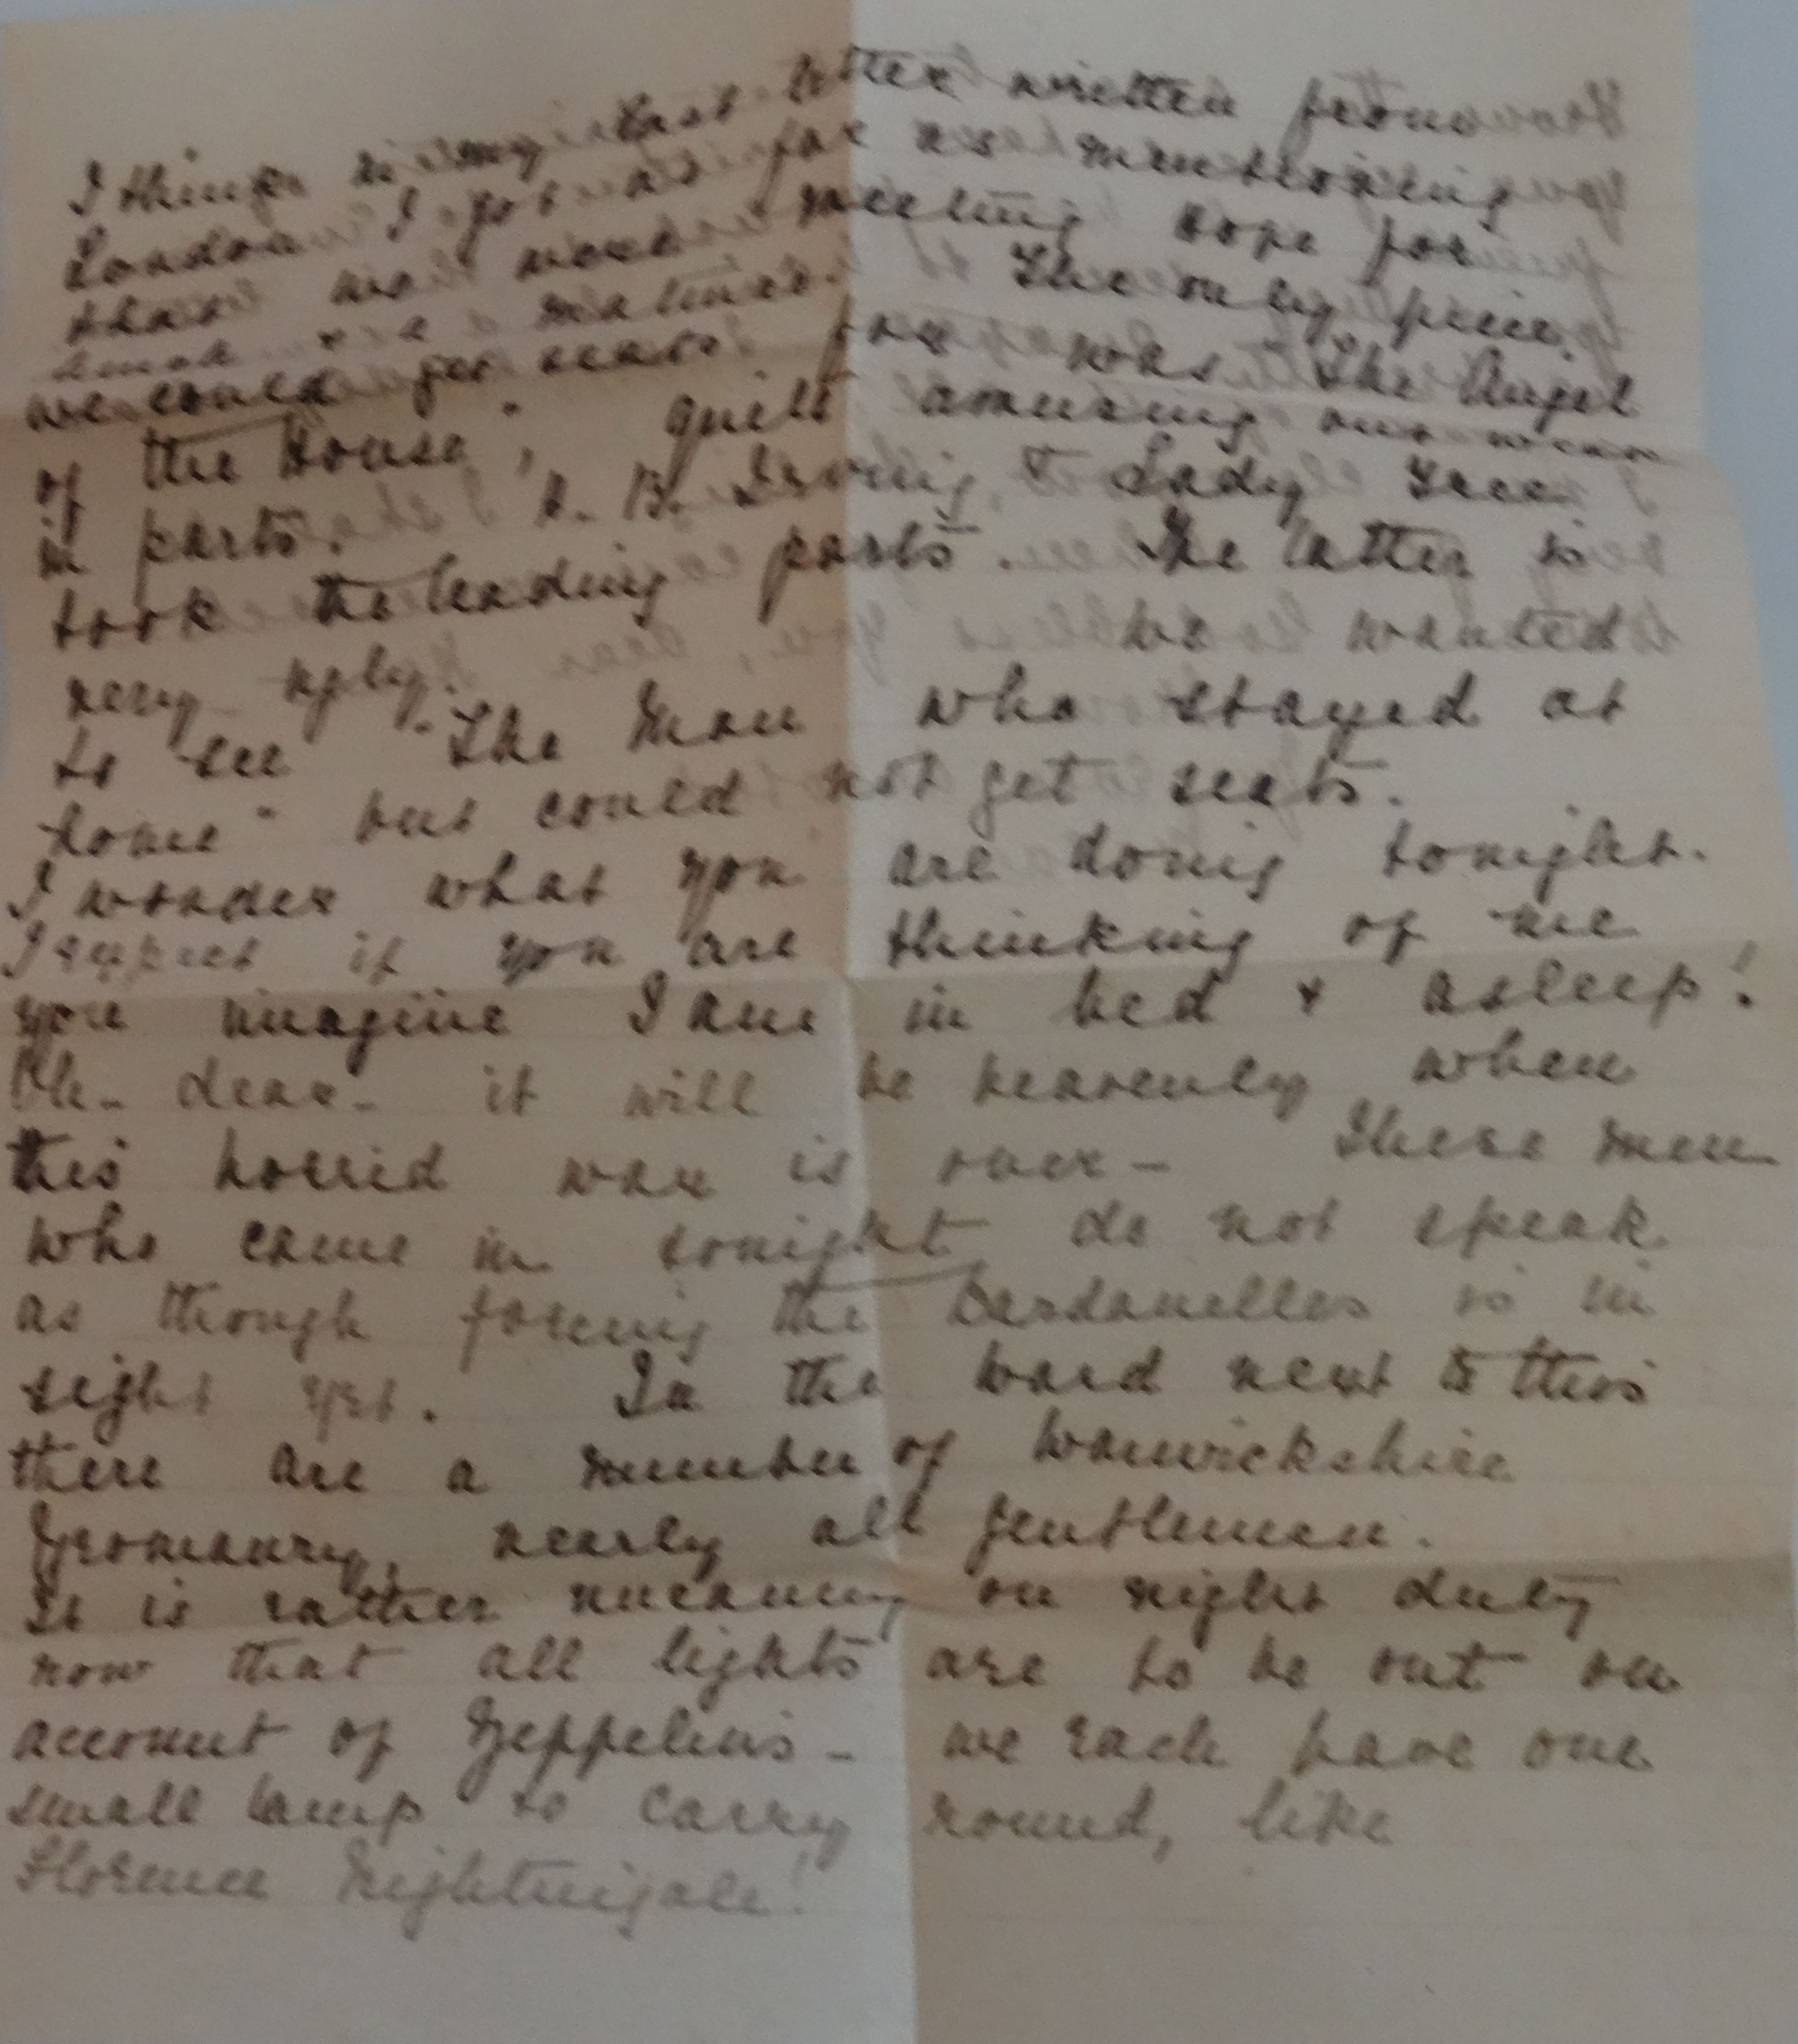 I think in my last letter written from
London I got as far as mentioning
that we were meeting Hope for
lunch & a matinee. The only piece
we could get seats for was "The Angel
of the House", quite amusing our wean
in parts. H. B. Irving, & Lady Tree
took the leading parts. The latter is
very ugly. We wanted
to see "The Man who stayed at
home" but could not get seats.
I wonder what you are doing tonight.
I expect if you are thinking of me
you imagine I am in bed & asleep!
Oh - dear - it will be heavenly when
this horrid war is over - These men
who came in tonight do not speak
as though forcing the Dardanelles is in
sight yet. In the ward next to this
there are a number of Warwickshire
Yeomanry, nearly all gentlemen.
It is rather uncanny on night duty
now that all lights are to be out on
account of Zeppelins - we each have one
small lamp to carry round, like
Florence Nightingale!